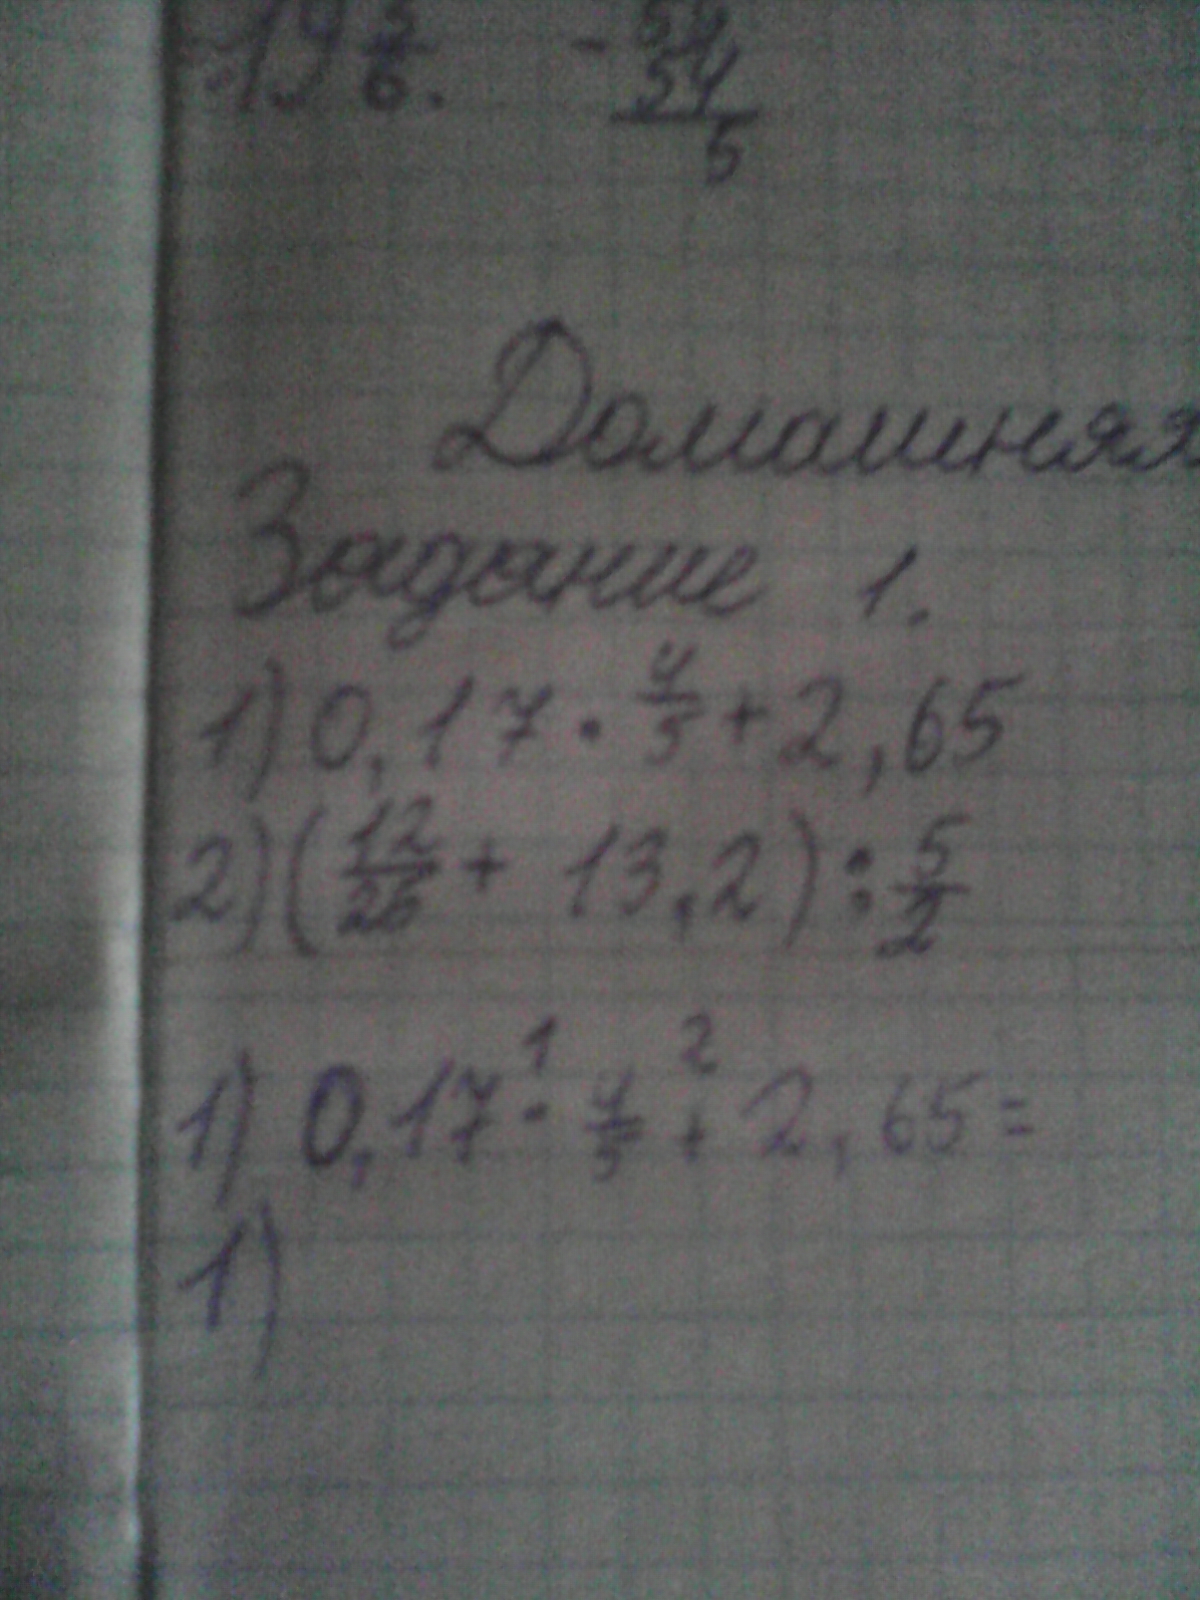 19 5/6. - 54
54
5
Домашняя
Задание 1.
1) 0,17 · 4/5 + 2,65
2) (12/26 + 13,2) : 5/2
1) 0,17 ·¹ 4/5 +² 2,65 =
1)